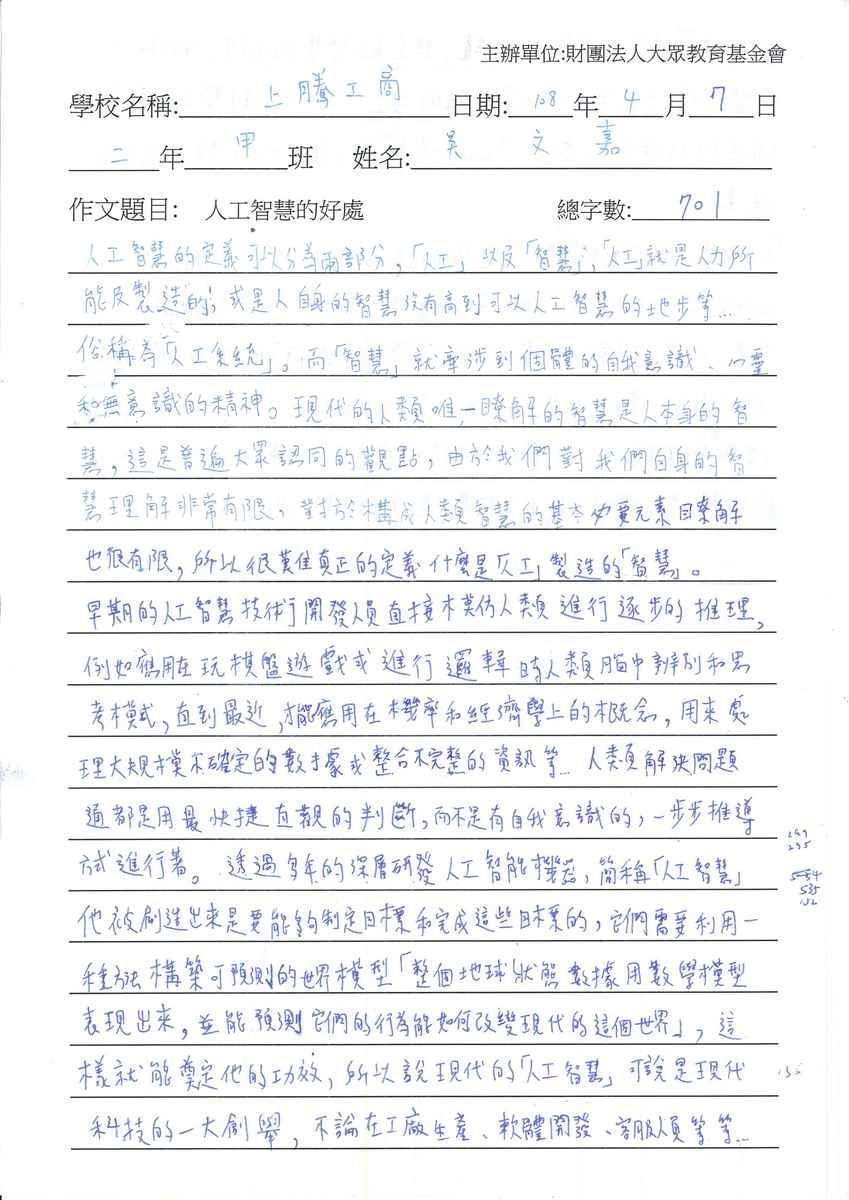 主辦單位:財團法人大眾教育基金會
學校名稱: 上騰工商 日期: 108 年 4 月 7 日
二 年 甲 班 姓名: 吳文嘉
作文題目: 人工智慧的好處 總字數: 701
人工智慧的定義可以分為兩部分,「人工」以及「智慧」,「人工」就是人力所
能及製造的;或是人自身的智慧沒有高到可以人工智慧的地步等…
俗稱為「人工系統」。而「智慧」就牽涉到個體的自我意識、心靈
和無意識的精神。現代的人類唯一瞭解的智慧是人本身的智
慧,這是普遍大眾認同的觀點,由於我們對我們自身的智
慧理解非常有限,對於構成人類智慧的基本必要元素瞭解
也很有限,所以很難真正的定義什麼是「人工」製造的「智慧」。
早期的人工智慧技術開發人員直接模仿人類進行逐步的推理,
例如應用在玩棋盤遊戲或進行邏輯時人類腦中辨別和思
考模式,直到最近,才能應用在機率和經濟學上的概念,用來處
理大規模不確定的數據或整合不完整的資訊等… 人類解決問題
通都是用最快捷直觀的判斷,而不是有自我意識的,一步步推導
方式進行著。透過多年的深層研發人工智能機器,簡稱「人工智慧」
他被創造出來是要能夠制定目標和完成這些目標的,它們需要利用一
種方法構築可預測的世界模型「整個地球狀態數據用數學模型
表現出來,並能預測它們的行為能如何改變現代的這個世界」,這
樣就能奠定他的功效,所以說現代的「人工智慧」可說是現代
科技的一大創舉,不論在工廠生產、軟體開發、客服人員等等…